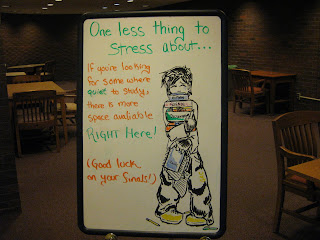 One less thing to
stress about...
If you're looking
for some where
quiet to study,
there is more
space available
RIGHT Here!
(Good luck
on your finals!)